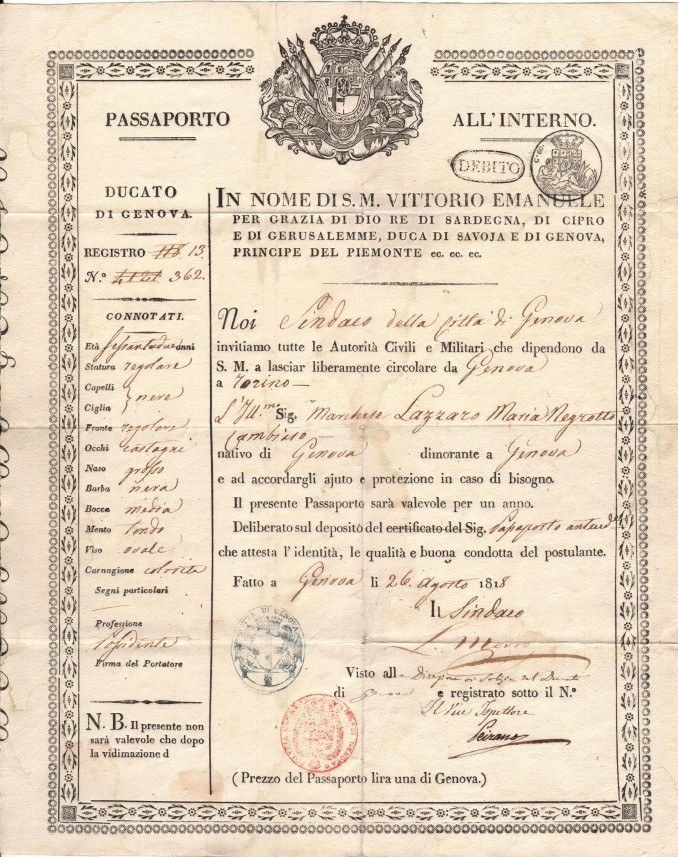 PASSAPORTO ALL'INTERNO.
DEBITO
DUCATO
DI GENOVA.
REGISTRO 118 13.
N.º 4121 362.
CONNOTATI.
Età sessantadue anni
Statura regolare
Capelli
Ciglia } nere
Fronte regolare
Occhi castagni
Naso grosso
Barba nera
Bocca media
Mento tondo
Viso ovale
Carnagione colorita
Segni particolari
Professione
Possidente
Firma del Portatore
N. B. Il presente non
sarà valevole che dopo
la vidimazione d
IN NOME DI S. M. VITTORIO EMANUELE
PER GRAZIA DI DIO RE DI SARDEGNA, DI CIPRO
E DI GERUSALEMME, DUCA DI SAVOJA E DI GENOVA,
PRINCIPE DEL PIEMONTE ec. ec. ec.
Noi Sindaco della città di Genova
invitiamo tutte le Autorità Civili e Militari che dipendono da
S. M. a lasciar liberamente circolare da Genova
a Torino
L'Ill.mo Sig. Marchese Lazzaro Maria Negrotto
Cambiaso
nativo di Genova dimorante a Genova
e ad accordargli ajuto e protezione in caso di bisogno.
Il presente Passaporto sarà valevole per un anno.
Deliberato sul deposito del certificato del Sig. Passaporto anteced.
che attesta l'identità, le qualità e buona condotta del postulante.
Fatto a Genova li 26. Agosto 1818
Il Sindaco
Visto all a Direzione di Polizia del Ducato
di Genova e registrato sotto il N.º
Il Vice Ispettore
Peirano
(Prezzo del Passaporto lira una di Genova.)